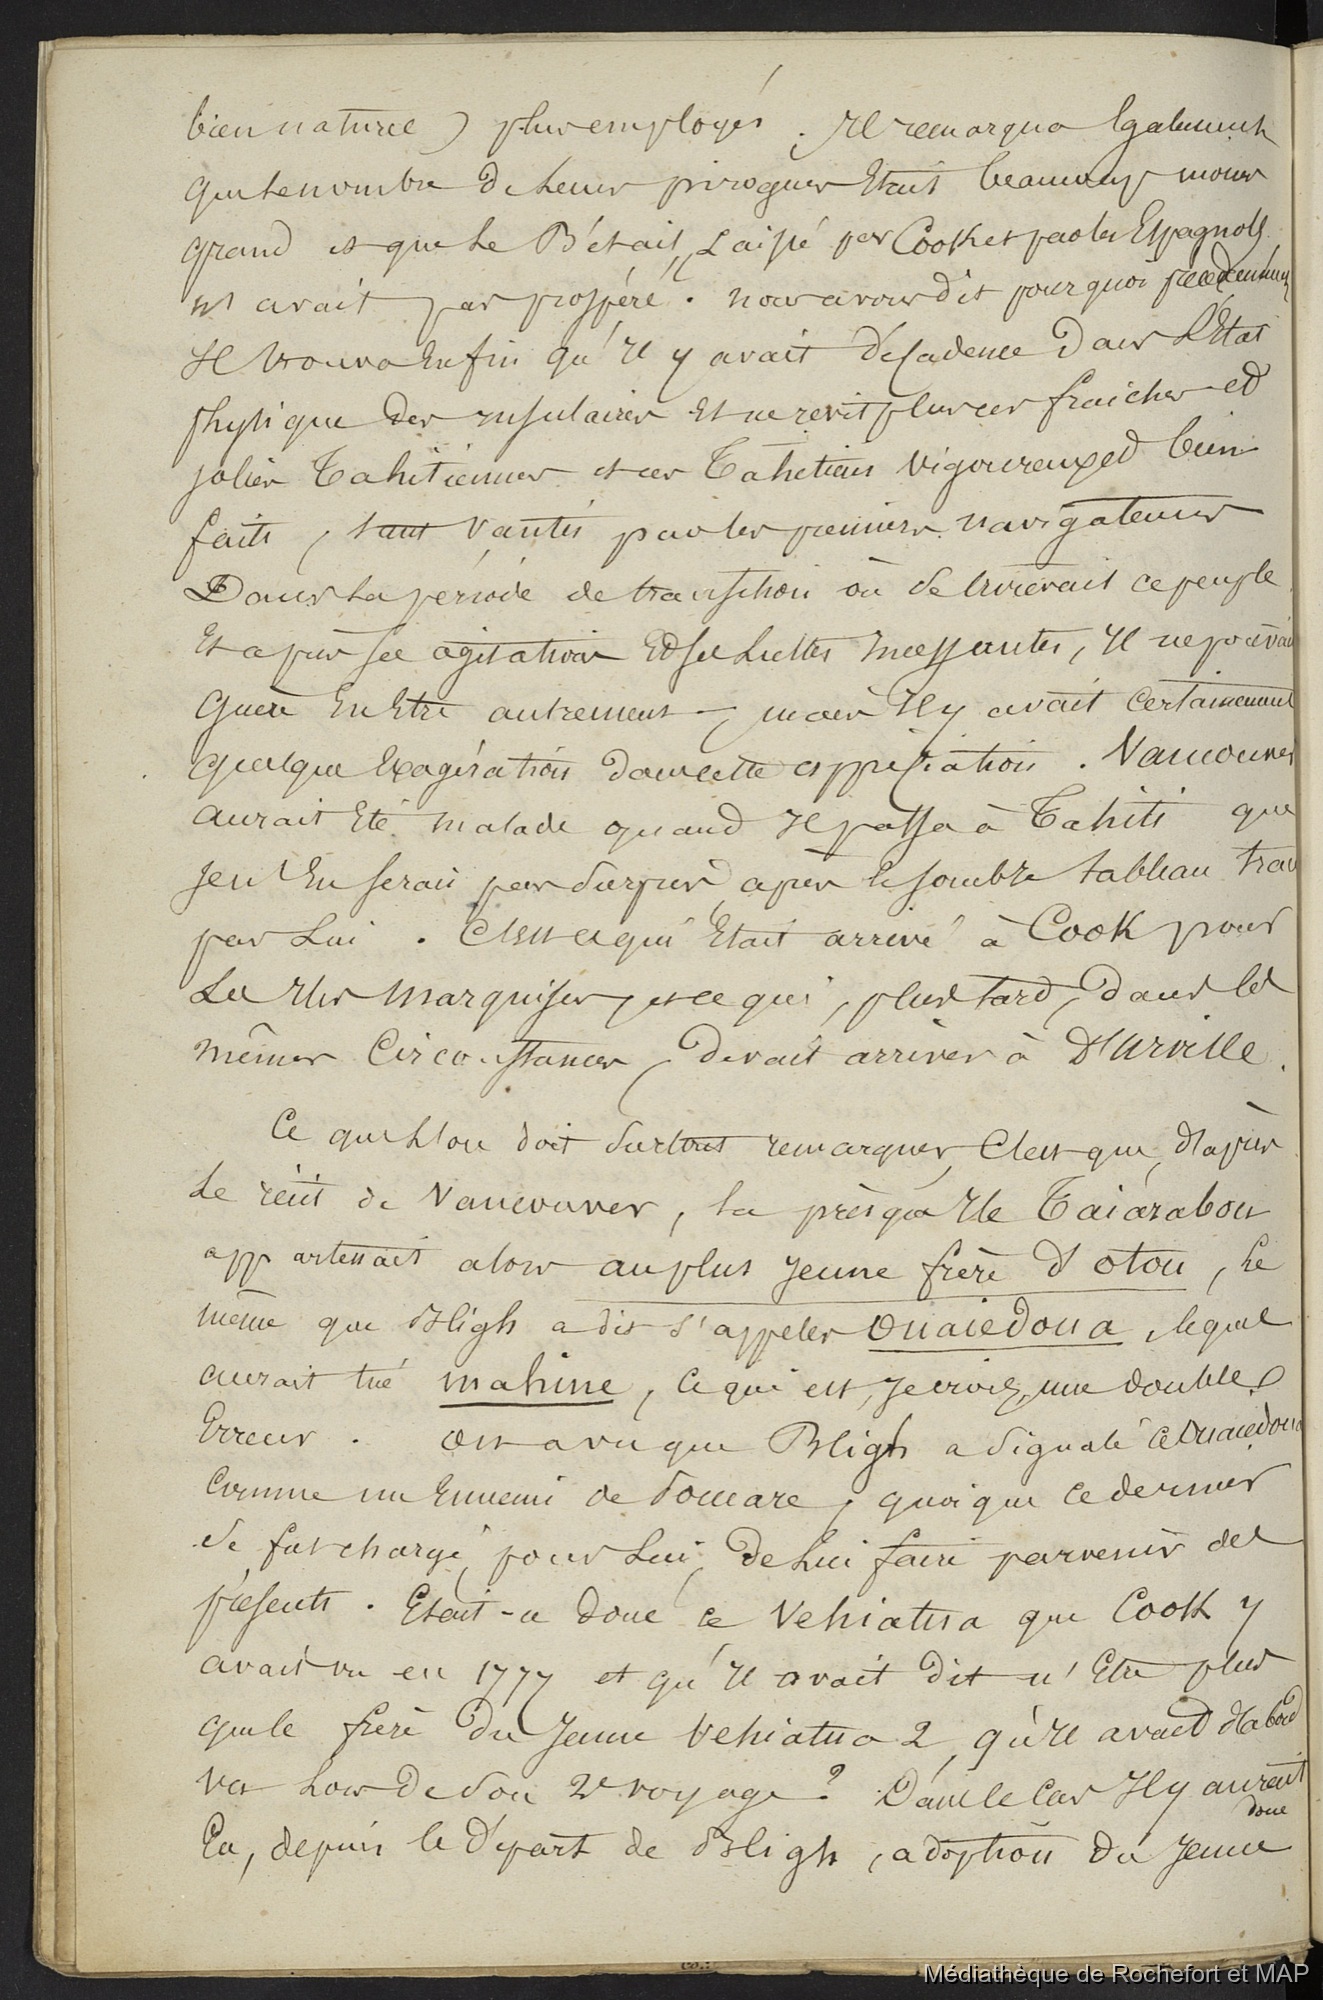 bien naturel) plus employés. Il remarqua également
que le nombre de leurs pirogues était beaucoup moins
grand et que le Bétail, laissé par Cook et par les Espagnols
n'y avait pas prospéré. nous avons dit pourquoi précédemment
Il trouva enfin qu'il y avait décadence dans l'État
physique des insulaires et ne revit plus ces fraiches et
jolies Tahitiennes et ces Tahitiens vigoureux et bien
faits, tant vantés par les premiers navigateurs
Dans la période de transition où se trouvait ce peuple
et après ses agitations et ses luttes incessantes, Il ne pouvait
guère en être autrement, mais il y avait certainement
quelque exagération dans cette appréciation. Vancouver
aurait été malade quand Il passa à Tahiti que
je n'en serais pas surpris, après le sombre tableau
par lui. C'est ce qui était arrivé à Cook pour
les Iles Marquises, et ce qui, plus tard, dans les
mêmes circonstances, devait arriver à D'Urville.
Ce que l'on doit surtout remarquer, c'est que, d'après
le récit de Vancouver, la presqu'Ile Taiarabou
appartenait alors au plus jeune frère d'otou, le
même que Bligh a dit s'appeler Ouaiedoua, lequel
aurait tué mahine, ce qui est, je crois, une double
erreur. on a vu que Bligh a signalé ce Ouaiedoua
comme un ennemi de Pomare, quoique ce dernier
se fut chargé, pour lui, de lui faire parvenir des
présents. Etait-ce donc ce Vehiatua que Cook y
avait vu en 1777 et qu'il avait dit n'être plus
que le frère du jeune Vehiatua 2, qu'il avait d'abord
vu lors de son 2e voyage? Dans le cas Il y aurait
donc
Eu, depuis le départ de Bligh, adoption du jeune
Médiathèque de Rochefort et MAP